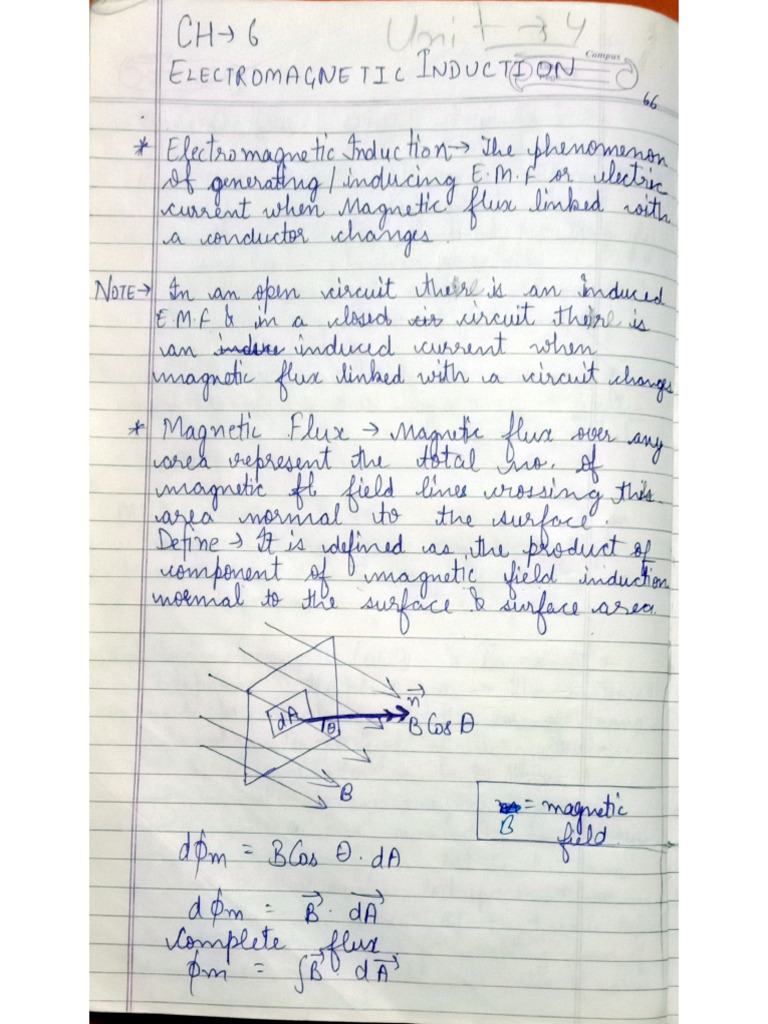 CH→6 Unit → 4
Campus
ELECTROMAGNETIC INDUCTION
66
* Electromagnetic Induction → The phenomenon
of generating/inducing E.M.F or electric
current when Magnetic flux linked with
a conductor changes.
NOTE → In an open circuit there is an induced
E.M.F & in a closed cir circuit there is
an induce induced current when
magnetic flux linked with a circuit changes
* Magnetic Flux → Magnetic flux over any
area represent the total no. of
magnetic fl field lines crossing this
area normal to the surface.
Define → It is defined as the product of
component of magnetic field induction
normal to the surface & surface area.
n⃗
dA θ B Cos θ
B
= magnetic
B field
dϕm = BCos θ . dA
dϕm = B⃗ . dA⃗
Complete flux
ϕm = ∫B⃗ . dA⃗